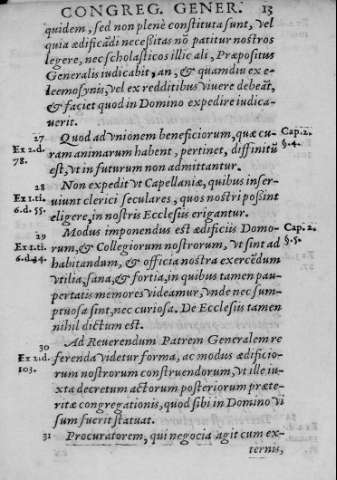 CONGREG. GENER. 13
quidem, sed non plenè constituta sunt, vel
quia ædificãdi necessitas nõ patitur nostros
legere, nec scholasticos illic ali, Præpositus
Generalis iudicabit, an, & quamdiu ex e-
leemosynis, vel ex redditibus viuere debeãt,
& faciet quod in Domino expedire iudica-
uerit.
27 Quod ad vnionem beneficiorum, quæ cu- Cap. 2.
Ex 2. d. ram animarum habent, pertinet, diffinitũ §. 4.
78. est, vt in futurum non admittantur.
28 Non expedit vt Capellaniæ, quibus inser-
Ex 1. ti. uiunt clerici seculares, quos nostri possint
6. d. 55. eligere, in nostris Ecclesiis erigantur.
29 Modus imponendus est ædificiis Domo- Cap. 2.
Ex 1. ti. rum, & Collegiorum nostrorum, vt sint ad §. 5.
6. d. 34. habitandum, & officia nostra exercẽdum
vtilia, sana, & fortia, in quibus tamen pau-
pertatis memores videamur, vnde nec sum-
ptuosa sint, nec curiosa. De Ecclesiis tamen
nihil dictum est.
30 Ad Reuerendum Patrem Generalem re
Ex 2. d. ferenda videtur forma, ac modus ædificio-
103. rum nostrorum construendorum, vt ille iu-
xta decretum actorum posteriorum præte-
ritæ congregationis, quod sibi in Domino vi
sum fuerit statuat.
31 Procuratorem, qui negocia agit cum ex-
ternis,